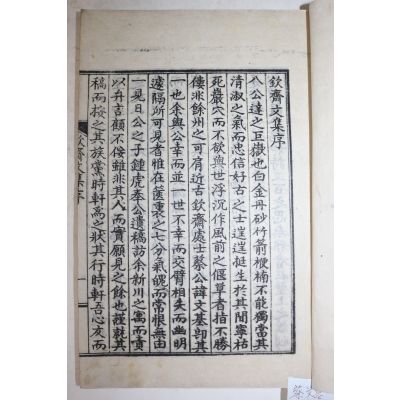 欽齋文集序
八公達之巨嶽也白金丹砂竹箭楩楠不能獨當其
清淑之氣而忠信好古之士逞逞挺生於其間寧枯
死巖穴而不欲與世浮沉作風前之偃草者指不勝
僂非余州之故欽齋處士蔡公諱文基卽其
一也余與公幸而並一世不幸而交臂相失而幽明
邃隔所可見者惟在篋裏之七分氣魄而常恨無由
一見日公之子鍾虎奉公遺稿訪余新川之寓而責
以弁吉顧不侫雖非其人而實願見之餘也謹就其
稿而按之其族黨時軒爲之狀其行時軒吾心友而
欽齋文集序